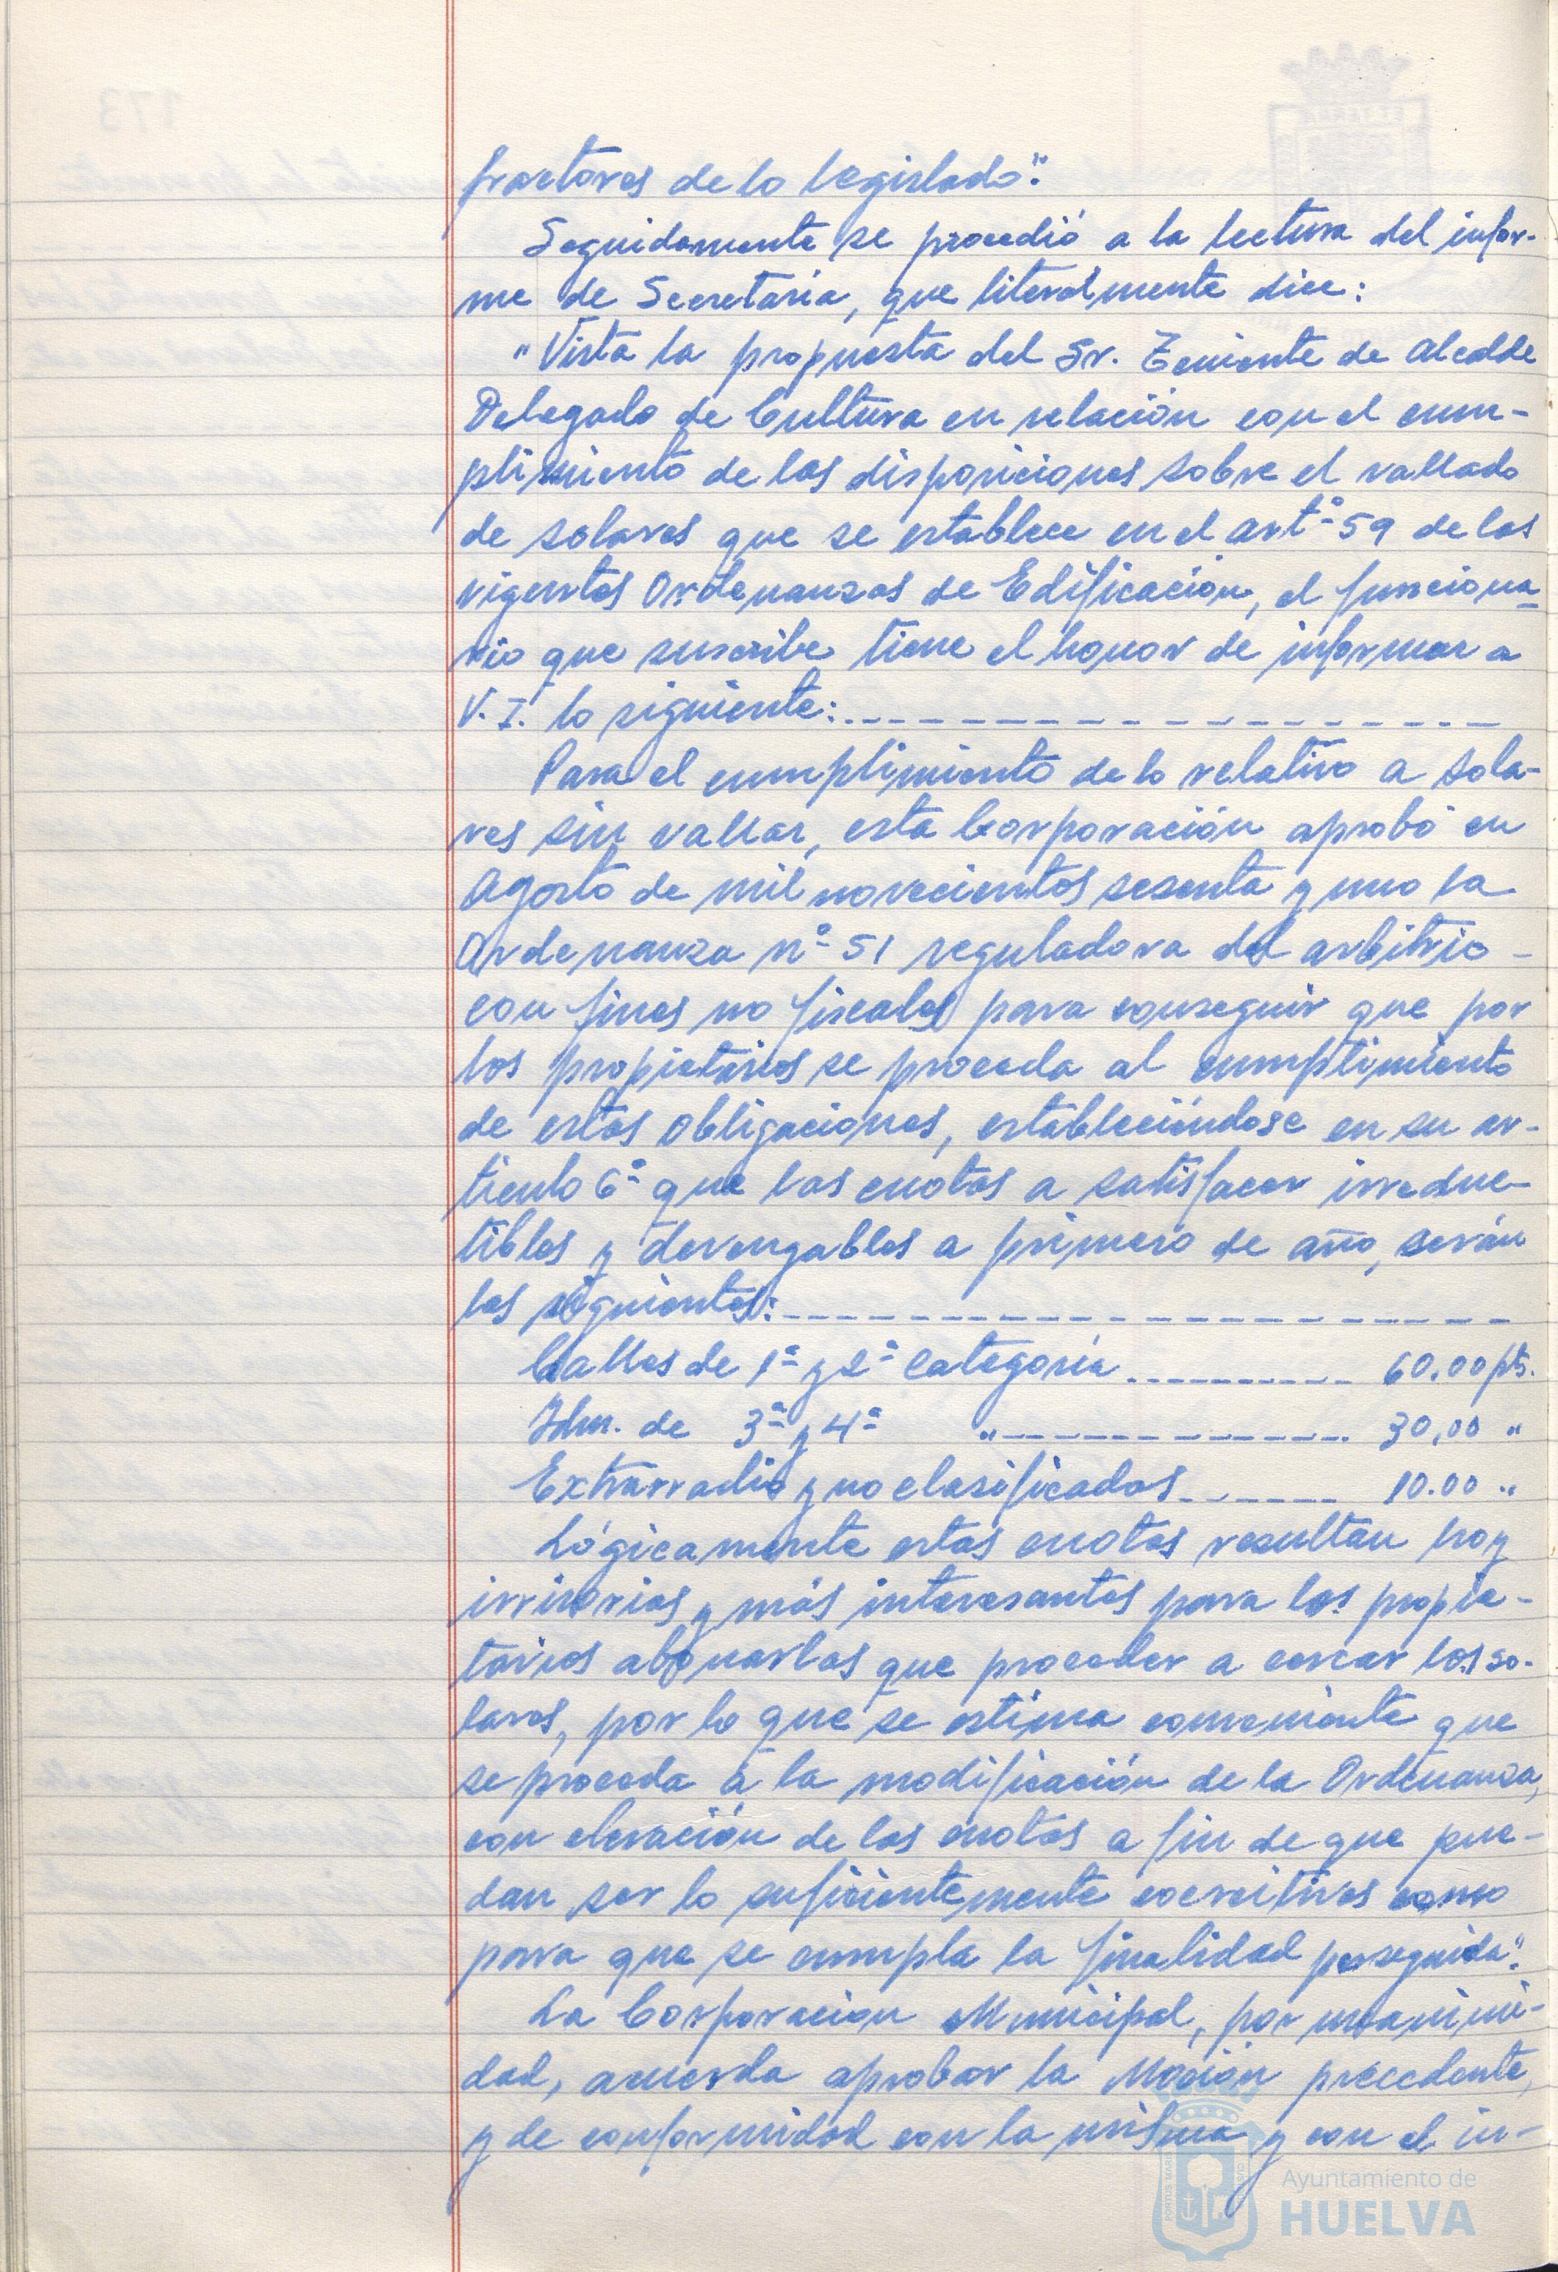 fractores de lo legislado".
Seguidamente se procedió a la lectura del infor-
me de Secretaría, que literalmente dice:
"Vista la propuesta del Sr. Teniente de Alcalde
Delegado de Cultura en relación con el cum-
plimiento de las disposiciones sobre el vallado
de solares que se establece en el artº 59 de las
vigentes Ordenanzas de Edificación, el funciona-
rio que suscribe tiene el honor de informar a
V.I. lo siguiente:
Para el cumplimiento de lo relativo a sola-
res sin vallar, esta Corporación aprobó en
Agosto de mil novecientos sesenta y uno la
Ordenanza nº 51 reguladora del arbitrio -
con fines no fiscales para conseguir que por
los propietarios se proceda al cumplimiento
de estas obligaciones, estableciéndose en su ar-
tículo 6º que las cuotas a satisfacer irreduc-
tibles y devengables a primero de año, serán
las siguientes:
Calles de 1ª y 2ª categoría 60.00 pts.
Idm. de 3ª y 4ª " 30,00 "
Extrarradio y no clasificadas 10.00 "
Lógicamente estas cuotas resultan hoy
irrisorias y más interesantes para los propie-
tarios abonarlas que proceder a cercar los so-
lares, por lo que se estima conveniente que
se proceda a la modificación de la Ordenanza,
con elevación de las cuotas a fin de que pue-
dan ser lo suficientemente coercitivas como
para que se cumpla la finalidad perseguida".
La Corporación Municipal, por unanimi-
dad, acuerda aprobar la Moción precedente,
y de conformidad con la misma y con el in-
Ayuntamiento de
HUELVA